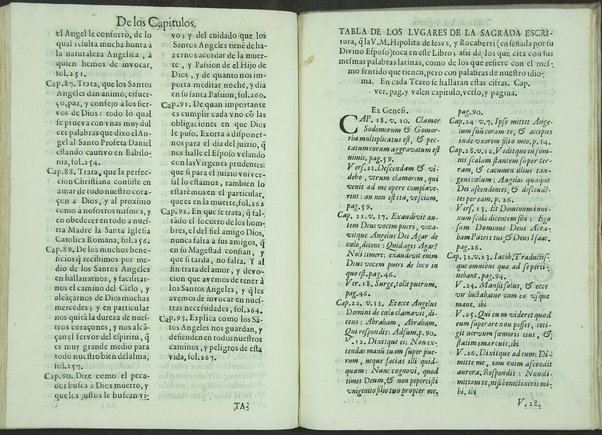 De los Capitulos.
el Angel le confortò, de lo
qual resulta mucha honra à
la naturaleza Angelica, à
quien hemos de invocar,
fol.251.
Cap.87. Trata, que los Santos
Angeles dan animo, esfuer-
ço, paz, y consejo à los sier-
vos de Dios: todo lo qual
se prueva con vnas muy dul
ces palabras que dixo el An-
gel al Santo Profeta Daniel
estando cautivo en Babilo-
nia, fol.254.
Cap.88. Trata, que la perfec-
cion Christiana consiste en
amar de todo nuestro cora-
çon à Dios, y al proximo
como à nosotros mismos, y
en obedecer en todo à nues-
tra Madre la Santa Iglesia
Catolica Romana, fol.256.
Cap.89. De los muchos bene-
ficios q̃ recibimos por me-
dio de los Santos Angeles
en hallanarnos, y facilitar-
nos el camino del Cielo, y
alcãçarnos de Dios muchas
mercedes, y en particular
nos quita la dureza de nues-
tros coraçones, y nos alcã-
çan el fervor del espiritu, q̃
es muy grande medio para
todo nuestro bien del alma,
fol.257.
Cap.90. Dize como el peca-
dor busca à Dios muerto, y
que los justos le buscan vi-
vo; y del cuidado que los
Santos Angeles tiene de ha-
zernos acordar de la muer-
te, y Passion de el Hijo de
Dios, y de quanto nos im-
porta meditar noche, y dia
en su santa Passion, fol.260.
Cap.91. De quan importante
es cumplir cada vno cõ las
obligaciones en que Dios
le puso. Exorta à disponer-
nos para el dia del juizio, q̃
nos halle el Esposo velando
con las Virgenes prudentes:
que si para el juizio vniver-
sal lo estamos, tambien lo
estaremos en el particular,
que es en la muerte, fol.262
Cap.92. En que se trata, q̃ fal-
tado el socorro de los hom-
bres, el del fiel amigo Dios,
nunca falta à sus amigos, q̃
en su Magestad confian, y
que todo es nada. Y al
fin trata del amor, y devo-
cion que avemos de tener à
los Santos Angeles, y q̃ les
avemos de invocar en nues-
tras necessidades, fol.264.
Cap.93. Explica como los Sã-
tos Angeles nos guardan, y
defienden en todos nuestros
caminos, y peligros de esta
vida, fol.267.
TA-
TABLA DE LOS LVGARES DE LA SAGRADA ESCRI-
tura, q̃ la V.M. Hipolita de Iesvs, y Rocaberti (enseñada por su
Divino Esposo) toca en este Libro: assi de los que cita con sus
mesmas palabras latinas, como de los que refiere con el mes-
mo sentido que tienen, pero con palabras de nuestro idio-
ma. En cada Texto se hallaran estas cifras. Cap.
ver. pag. y valen capitulo, verso, y pagina.
Ex Genesi.
CAP. 18. v. 20. Clamor
Sodomorum & Gomor-
rha multiplicatus est, & pec-
catum eorum aggravatum est
nimis. pag.59.
Vers.21. Descendam & vi-
debo, vtrum clamorem, qui
venit ad me opere complave-
rint: an non est ita, vt sciam,
pag.59.
Cap. 21. v.17. Exaudivit au-
tem Deus vocem pueri, voca-
vitque Angelus Dei Agar de
cœlo, dicens: Quid agis Agar?
Noli timere: exaudivit enim
Deus vocem pueri de loco in
quo est, pag.46.
Ver.18. Surge, tolle puerum,
pag.46.
Cap. 22. v.11. Et ecce Angelus
Domini de cœlo clamavit, di-
cens: Abraham, Abraham.
Qui respondit: Adsum, p.90.
V.12. Dixitque ei: Non ex-
tendas manũ tuam super pue-
rum, neque facias illi quid-
quam: Nunc cognovi, quod
times Deum, & non pepercisti
vnigenito filio tuo propter me,
pag.90.
Cap.24. v.7. Ipse mittet Ange-
lum suũ coram te, & accipies
inde vxorem filio meo, p.14.
Cap.28. v.12. Vidit que in som-
nis scalam stantem super ter-
ram, & cacumen illius tan-
gens cœlum: Angelos quoque
Dei ascendentes, & discendẽ-
tes per eam, p.26.
Vers.13. Et Dominum inni-
xum scalæ dicentem sibi: Ego
sum Dominus Deus Abra-
ham Patris tui, & Deus Isaac,
pag.26.
Cap.32. v.23. Iacob, Traductis-
que omnibus qua ad se perti-
nebant, pag.94.
V.24. Mansit solus, & ecce
vir luctabatur cum eo vsque
mane, ibi
V.25. Qui cum videret quod
eum superare non posset, teti-
git nervum fœmoris eius, &
statim emarcuit, ibi
V.26. Dixitque ad eum: Di-
mitte me, iam enim ascendit
aurora, Respondit: Non di-
mittam te, nisi benedixeris mi-
hi, ibi
V.28.